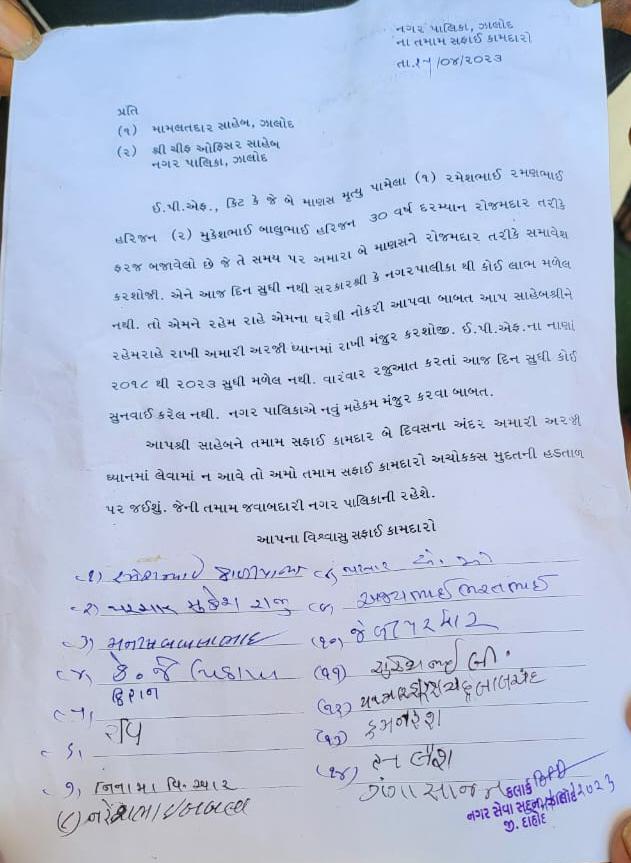 નગર પાલિકા, ઝાલોદ
ના તમામ સફાઈ કામદારો
તા.૨૫/૦૪/૨૦૨૩
પ્રતિ
(૧) મામલતદાર સાહેબ, ઝાલોદ
(૨) શ્રી ચીફ ઓફિસર સાહેબ
નગર પાલિકા, ઝાલોદ
ઈ.પી.એફ., કિટ કે જે બે માણસ મૃત્યુ પામેલા (૧) રમેશભાઈ રમણભાઈ
હરિજન (૨) મુકેશભાઈ બાલુભાઈ હરિજન ૩૦ વર્ષ દરમ્યાન રોજમદાર તરીકે
ફરજ બજાવેલો છે જે તે સમય પર અમારા બે માણસને રોજમદાર તરીકે સમાવેશ
કરશોજી. એને આજ દિન સુધી નથી સરકારશ્રી કે નગરપાલીકા થી કોઈ લાભ મળેલ
નથી. તો એમને રહેમ રાહે એમના ઘરેથી નોકરી આપવા બાબત આપ સાહેબશ્રીને
રહેમરાહે રાખી અમારી અરજી ધ્યાનમાં રાખી મંજુર કરશોજી. ઈ.પી.એફ.ના નાણાં
૨૦૧૮ થી ૨૦૨૩ સુધી મળેલ નથી. વારંવાર રજુઆત કરતાં આજ દિન સુધી કોઈ
સુનવાઈ કરેલ નથી. નગર પાલિકાએ નવું મહેકમ મંજુર કરવા બાબત.
આપશ્રી સાહેબને તમામ સફાઈ કામદાર બે દિવસના અંદર અમારી અરજી
ધ્યાનમાં લેવામાં ન આવે તો અમો તમામ સફાઈ કામદારો અચોકકસ મુદતની હડતાળ
પર જઈશું. જેની તમામ જવાબદારી નગર પાલિકાની રહેશે.
આપના વિશ્વાસુ સફાઈ કામદારો
(૨) પરમાર મુકેશ રાજુ
(૯) અજયભાઈ ભરતભાઈ
(૧૦) જે બી પરમાર
(૪) કે. જે
(૧૧) સુરેશભાઈ બી.
(૫) કિશન
(૬) રવિ
(૧૩) કમનરેશ
(૭) નિનામા
(૧૪)
(૮) નરેશભાઈ
ગંગા સાજન
કલાર્ક
નગર સેવા સદન, ઝાલોદ
જી. દાહોદ